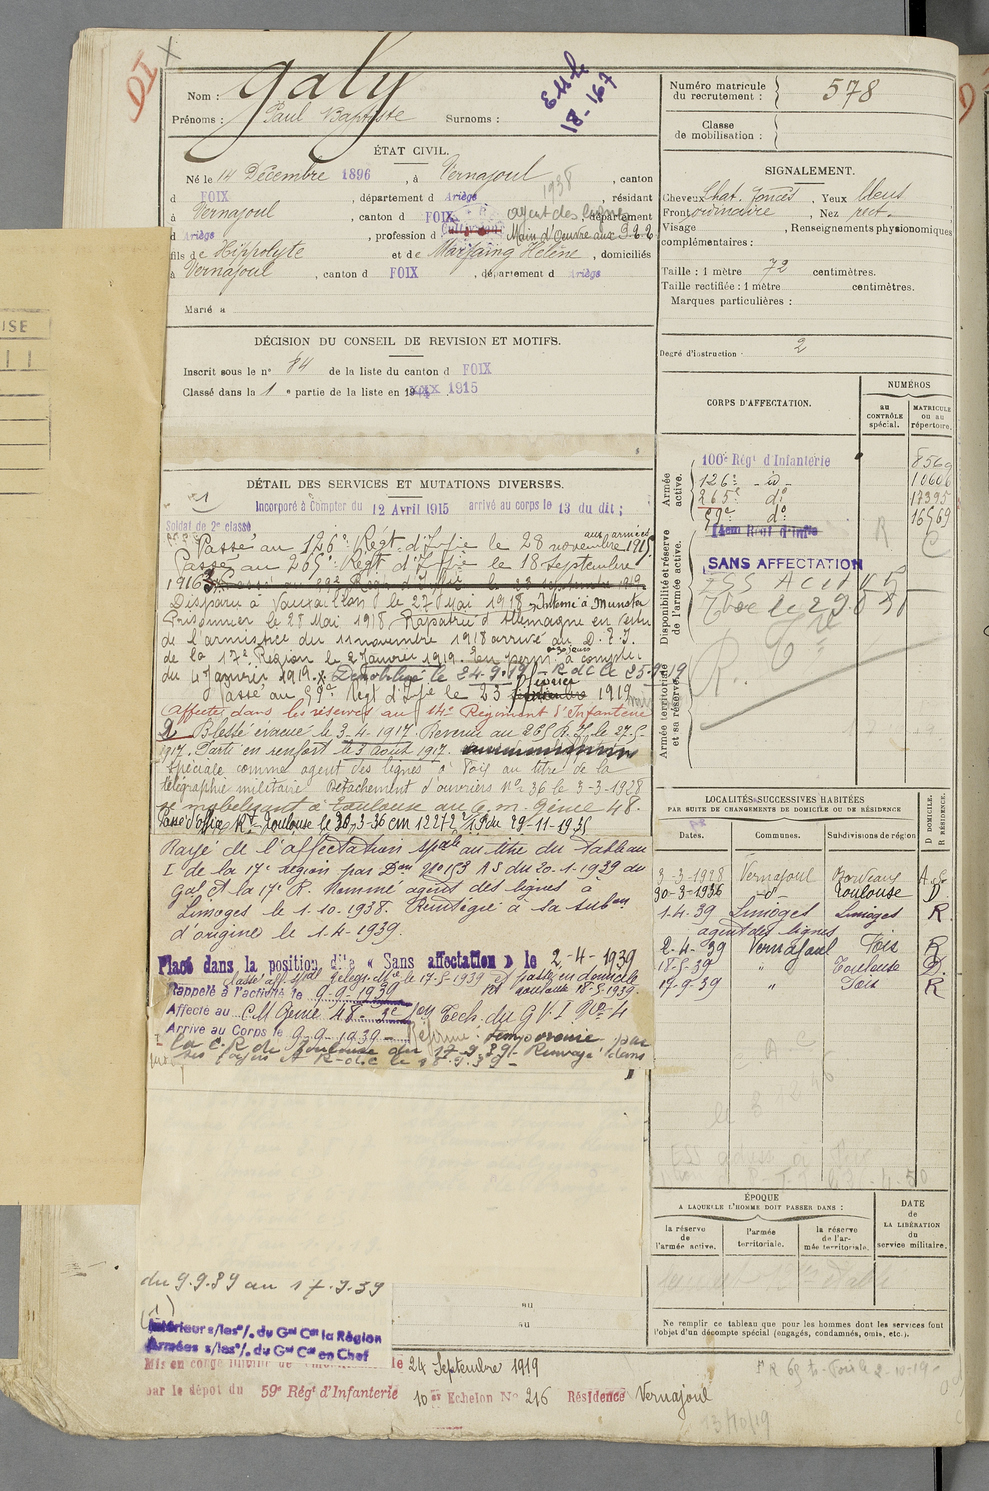 DI
Nom : Galy
Prénoms : Paul Baptiste Surnoms :
18-167
Numéro matricule du recrutement : 578
Classe de mobilisation :
ÉTAT CIVIL.
Né le 14 Décembre 1896, à Vernajoul, canton
d FOIX, département d Ariège, résidant
1938
à Vernajoul, canton d FOIX, département
agent des lignes
d Ariège, profession d Cultivateur
Main d'Oeuvre aux 3.2.2
fils de Hippolyte et de Marfaing Hélène, domiciliés
à Vernajoul, canton d FOIX, département d Ariège
Marié à
SIGNALEMENT.
Cheveux Chat. foncés, Yeux bleus
Front ordinaire, Nez rect.
Visage , Renseignements physionomiques
complémentaires :
Taille : 1 mètre 72 centimètres.
Taille rectifiée : 1 mètre centimètres.
Marques particulières :
Degré d'instruction : 2
DÉCISION DU CONSEIL DE REVISION ET MOTIFS.
Inscrit sous le n° 84 de la liste du canton d FOIX
Classé dans la 1 e partie de la liste en 19 1915
CORPS D'AFFECTATION.
NUMÉROS
au CONTRÔLE spécial.
MATRICULE ou au répertoire.
Armée active.
100e Régt d'Infanterie 8569
126e -d°- 10606
265e d° 17395
59e d° 16569
Disponibilité et réserve de l'armée active.
14eme Regt d'Inftie
SANS AFFECTATION
Armée territoriale et sa réserve.
DÉTAIL DES SERVICES ET MUTATIONS DIVERSES.
1
Incorporé à Compter du 12 Avril 1915 arrivé au corps le 13 du dit ;
Soldat de 2e classe
Passé au 126e Régt d'Ifie le 28 novembre 1915
aux armées
Passé au 265e Régt d'Ifie le 18 Septembre
1916. Passé au 59e Régt d'Ifie le 23 septembre 1919
Disparu à Vauxaillon le 27 Mai 1918. Interné à Munster
Prisonnier le 28 Mai 1918. Rapatrié d'Allemagne en vertu
de l'armistice du 11 novembre 1918 arrivé au D. T. I.
de la 17e Région le 2 Janvier 1919. En perm. à compter
30 jours
du 4 Janvier 1919. Démobilisé le 24-9-19. R de C le 25-9-19
Passé au 59e Régt d'Ifie le 23 février 1919
Affecté dans les réserves au 14e Régiment d'Infanterie
Blessé évacué le 3-4-1917. Revenu au 265 R.I. le 27-5-
1917. Parti en renfort le 3 août 1917.
Spéciale comme agent des lignes à Foix au titre de la
télégraphie militaire. Détachement d'ouvriers No 36 le 3-3-1928
mobelisant à Toulouse au C.M. Génie 48
Passé d'office Rt Toulouse le 30-3-36 CM 12272 1/19 du 29-11-1935
Rayé de l'affectation spale au titre du Tableau
I de la 17e Région par Don No 153 AS du 20-1-1939 du
Gal Ct la 17e R. Nommé agent des lignes à
Limoges le 1-10-1938. Réintégré à sa subon
d'origine le 1-4-1939.
Placé dans la position dite « Sans affectation » le 2-4-1939
Classé aff. spal Télégr. Mre le 17-5-1939
passe en domicile
Toulouse 18-5-1939
Rappelé à l'activité le 9-9-1939
Affecté au CM Génie 48
Arrivé au Corps le 9-9-1939
Réforme temporaire par
la C.R. de Toulouse du 17-9-39. Renvoyé dans
ses foyers et R-d-C le 18-9-39
LOCALITÉS SUCCESSIVES HABITÉES
PAR SUITE DE CHANGEMENTS DE DOMICILE OU DE RÉSIDENCE
Dates. Communes. Subdivisions de région D DOMICILE. R RÉSIDENCE.
3-3-1928 Vernajoul Bordeaux
30-3-1936 -d°- Toulouse D
1-4-39 Limoges Limoges R.
agent des lignes
2-4-39 Vernajoul Foix R
18-5-39 " Toulouse D.
17-9-39 " Foix R
ÉPOQUE
A LAQUELLE L'HOMME DOIT PASSER DANS :
la réserve de l'armée active.
l'armée territoriale.
la réserve de l'armée territoriale.
DATE de LA LIBÉRATION du service militaire.
Ne remplir ce tableau que pour les hommes dont les services font
l'objet d'un décompte spécial (engagés, condamnés, omis, etc.).
au
au
du 9.9.39 au 17.9.39
(1)
Intérieur s/les °/. du Gal Ct la Région
Armées s/les °/. du Gal Ct en Chef
Mis en congé illimité de le 24 Septembre 1919
par le dépôt du 59e Régt d'Infanterie 10er Echelon No 216 Résidence Vernajoul
13/10/19